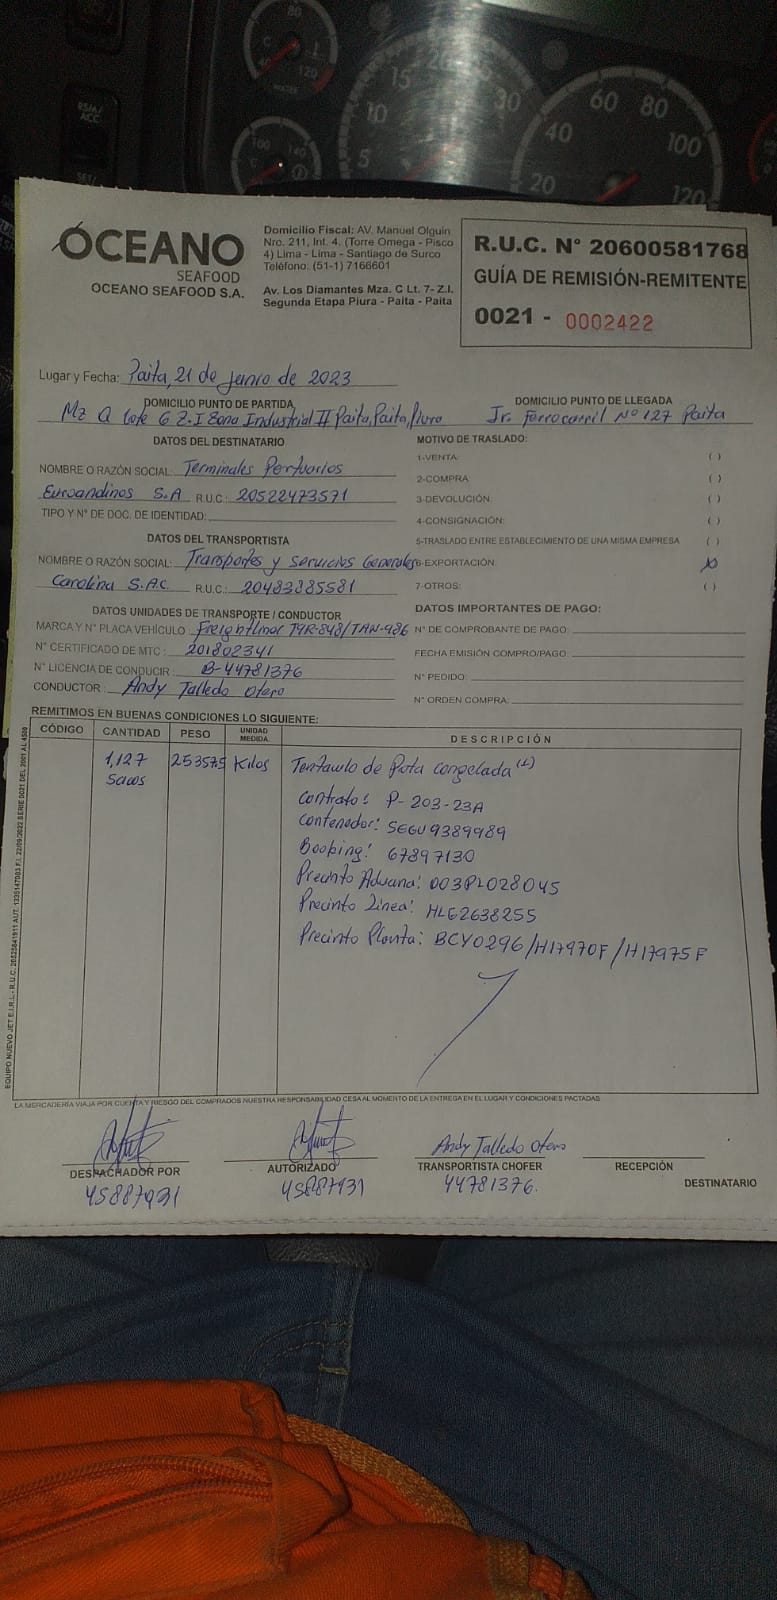 ÓCEANO
SEAFOOD
OCEANO SEAFOOD S.A.
Domicilio Fiscal: AV. Manuel Olguin
Nro. 211, Int. 4. (Torre Omega - Pisco
4) Lima - Lima - Santiago de Surco
Teléfono: (51-1) 7166601
Av. Los Diamantes Mza. C Lt. 7- Z.I.
Segunda Etapa Piura - Paita - Paita
R.U.C. N° 20600581768
GUÍA DE REMISIÓN-REMITENTE
0021 - 0002422
Lugar y Fecha: Paita, 21 de junio de 2023
DOMICILIO PUNTO DE PARTIDA
Mz Q lote 6 Z.I Zona Industrial II Paita, Paita, Piura
DOMICILIO PUNTO DE LLEGADA
Jr. Ferrocarril N° 127 Paita
DATOS DEL DESTINATARIO
NOMBRE O RAZÓN SOCIAL: Terminales Portuarios
Euroandinos S.A R.U.C.: 20522473571
TIPO Y N° DE DOC. DE IDENTIDAD:
MOTIVO DE TRASLADO:
1-VENTA: ( )
2-COMPRA: ( )
3-DEVOLUCIÓN: ( )
4-CONSIGNACIÓN: ( )
5-TRASLADO ENTRE ESTABLECIMIENTO DE UNA MISMA EMPRESA ( )
6-EXPORTACIÓN: (X)
7-OTROS: ( )
DATOS DEL TRANSPORTISTA
NOMBRE O RAZÓN SOCIAL: Transportes y servicios Generales
Carolina S.A.C. R.U.C.: 20483885581
DATOS UNIDADES DE TRANSPORTE / CONDUCTOR
MARCA Y N° PLACA VEHÍCULO Freightliner T9R-848/TAN-986
N° CERTIFICADO DE MTC: 201802341
N° LICENCIA DE CONDUCIR: B-44781376
CONDUCTOR: Andy Talledo Otero
DATOS IMPORTANTES DE PAGO:
N° DE COMPROBANTE DE PAGO:
FECHA EMISIÓN COMPRO/PAGO:
N° PEDIDO:
N° ORDEN COMPRA:
REMITIMOS EN BUENAS CONDICIONES LO SIGUIENTE:
CÓDIGO CANTIDAD PESO UNIDAD MEDIDA. DESCRIPCIÓN
1,127 25357.5 Kilos Tentaculo de Pota congelada (L)
Sacos
Contrato: P-203-23A
Contenedor: SEGU9389989
Booking: 67897130
Precinto Aduana: 003PL028045
Precinto Linea: HLG2638255
Precinto Planta: BCY0296/H17970F/H17975F
LA MERCADERÍA VIAJA POR CUENTA Y RIESGO DEL COMPRADOS NUESTRA RESPONSABILIDAD CESA AL MOMENTO DE LA ENTREGA EN EL LUGAR Y CONDICIONES PACTADAS
DESPACHADOR POR
45887931
AUTORIZADO
45887931
Andy Talledo Otero
TRANSPORTISTA CHOFER
44781376.
RECEPCIÓN
DESTINATARIO
RSM/
ACC
SET/
80
C
40
120
WATER
100
140
C
5
10
15
20
30
20
40
60
80
100
120